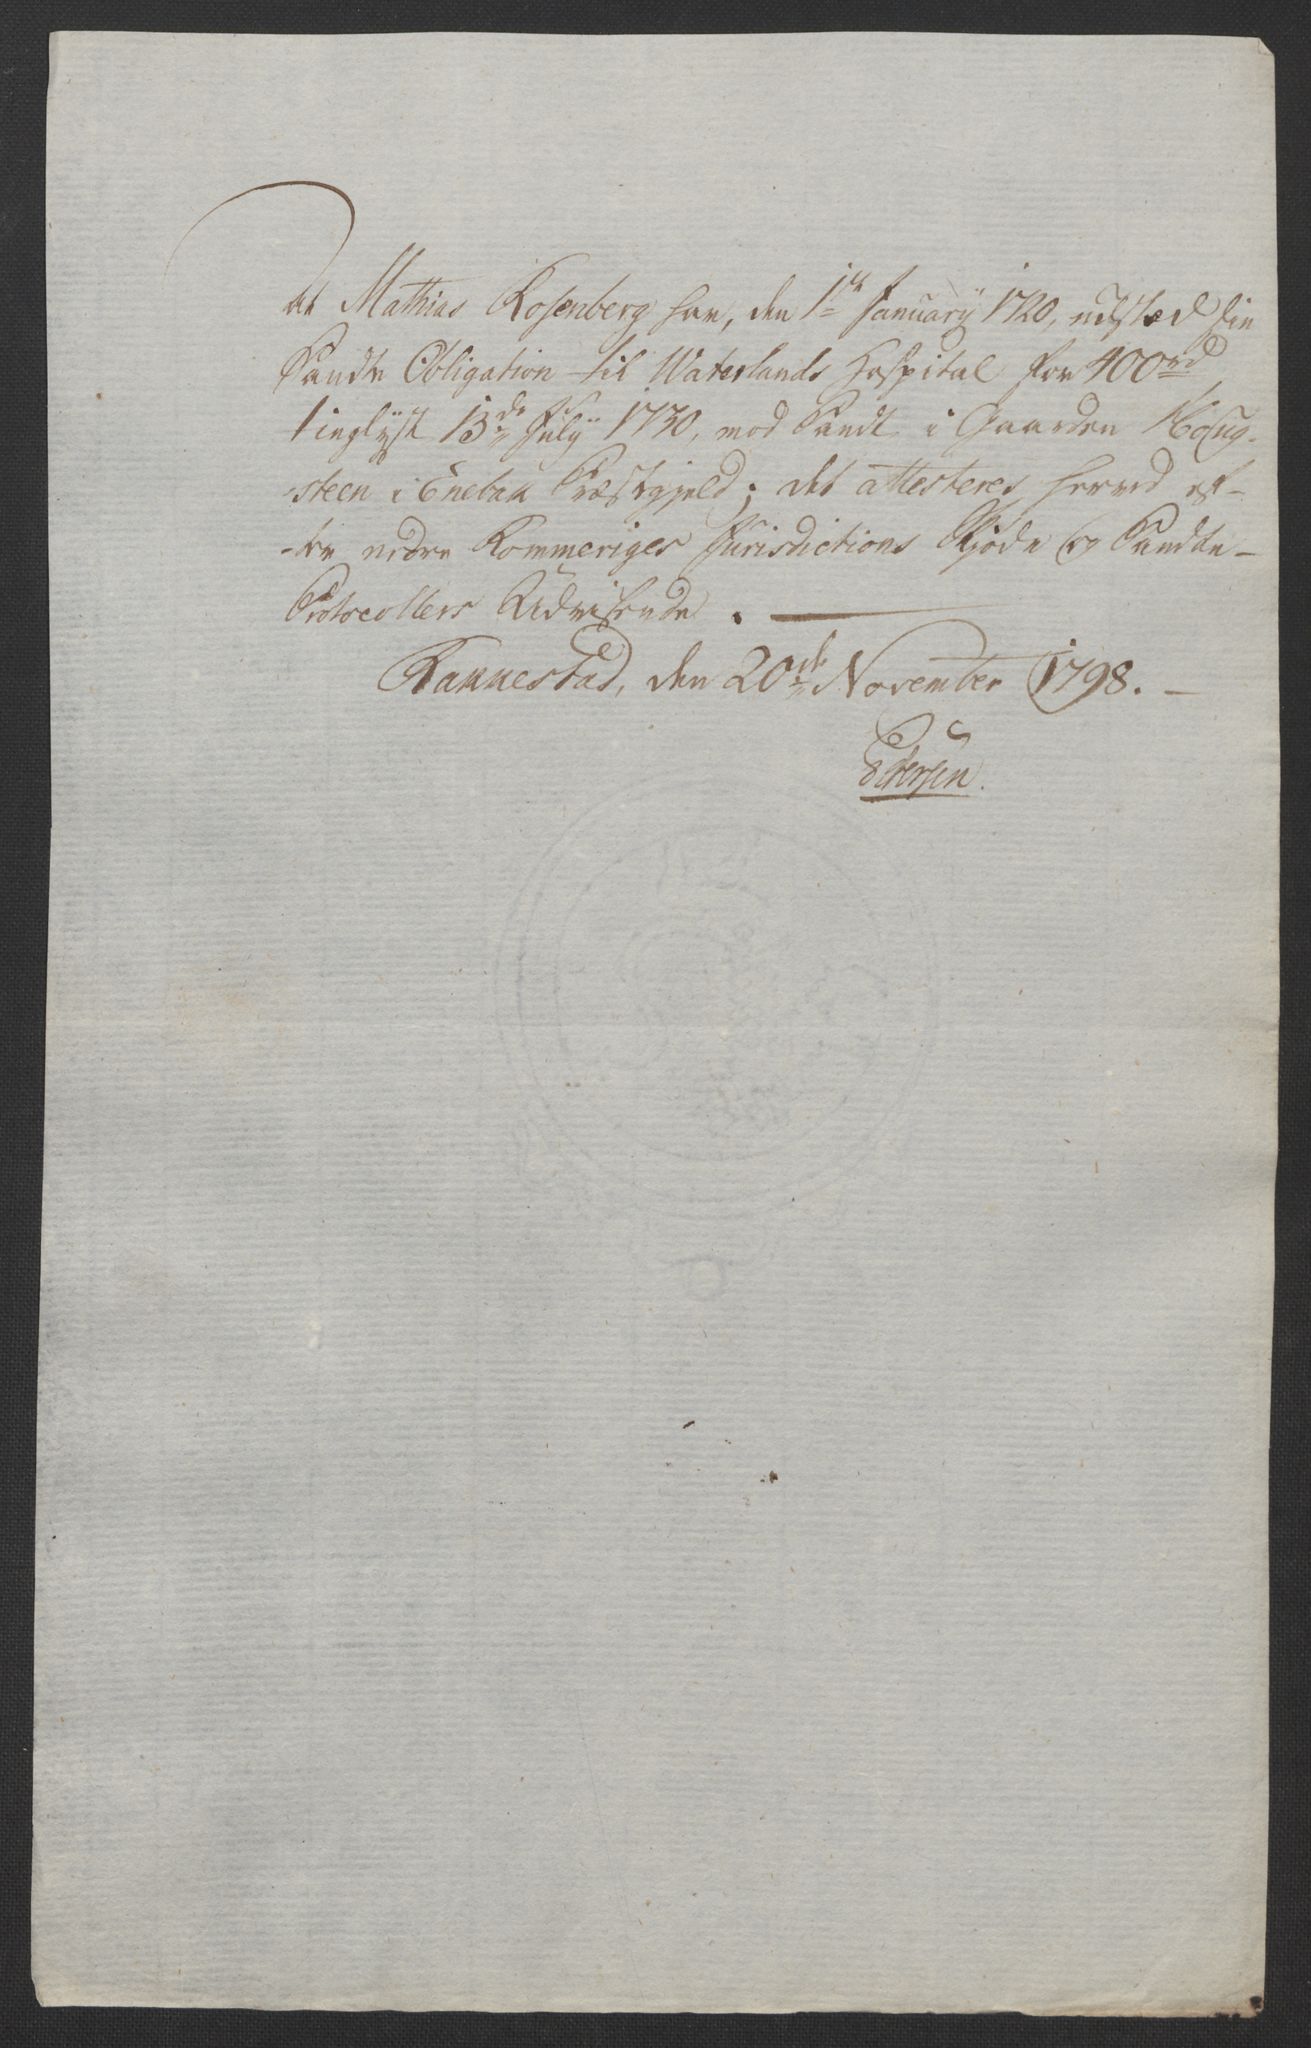 At Mathias Rosenberg har, den 1ste January 1720, udstæd sin
Pandte Obligation til Waterlands Hospital for 400 rd,
tinglyst 13de July 1730, mod Pandt i Gaarden Houg-
-steen i Enebak Præstegjeld; det attesteres herved ef-
-ter nedre Rommeriges Jurisdictions Skjøde og Pandte-
Protocollers Udvisende. —
Rannestad, den 20de November 1798. —
Petersen.